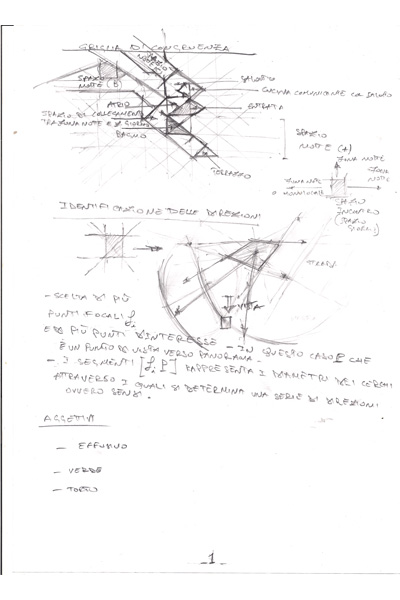 GRIGLIA DI CONGRUENZA
SPAZIO NOTTE
SPAZIO
NOTTE (B)
SALOTTO
CUCINA COMUNICANTE COL SALOTTO
ATRIO
ENTRATA
SPAZIO DI COLLEGAMENTO
TRA ZONA NOTTE E GIORNO
BAGNO
TERRAZZO
SPAZIO
NOTTE (A)
ZONA NOTTE
ZONA
NOTTE
SPAZIO
IDENTIFICAZIONE DELLE DIREZIONI
- SCELTA DI PIÙ
PUNTI FOCALI fi
E DI PIÙ PUNTI D'INTERESSE - IN QUESTO CASO P CHE
È UN PUNTO DI VISTA VERSO PANORAMA.
- I SEGMENTI [fi P] RAPPRESENTA I DIAMETRI DEI CERCHI
ATTRAVERSO I QUALI SI DETERMINA UNA SERIE DI DIREZIONI
OVVERO SENSI.
AGGETTIVI
-
- VERDE
-
- 1 -